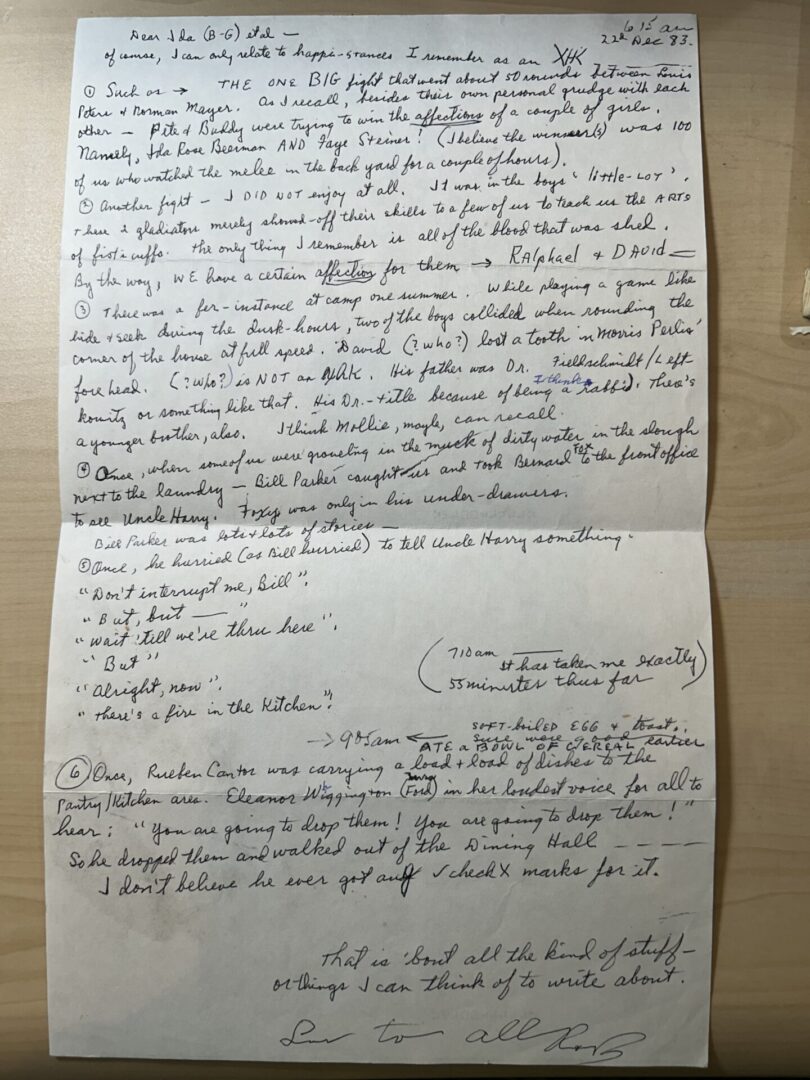 6 15 am
Dear Ida (B-G) et al —
22nd Dec 83.
of course, I can only relate to happin-stances I remember as an XHK
① Such as → THE ONE BIG fight that went about 50 rounds between Louis
Peters & Norman Mayer. As I recall, besides their own personal grudge with each
other — Pete & Buddy were trying to win the affections of a couple of girls.
Namely, Ida Rose Beerman AND Faye Steiner! (I believe the winner(s) was 100
of us who watched the melee in the back yard for a couple of hours).
② Another fight — I DID NOT enjoy at all. It was in the boys' "little-LOT".
These 2 gladiators merely showed-off their skills to a few of us to teach us the ARTS
of fist-i-cuffs. The only thing I remember is all of the blood that was shed.
By the way, WE have a certain affection for them → RAlphael & DAVID =
③ There was a fer-instance at camp one summer. While playing a game like
hide & seek during the dusk-hours, two of the boys collided when rounding the
corner of the house at full speed. David (? who?) lost a tooth in Morris Perlis'
fore head. (? who?) is NOT an XHK. His father was Dr. Fieldschmidt/Left
kowitz or something like that. His Dr.-title because of being a rabbi). There's
I think
a younger brother, also. I think Mollie, maybe, can recall.
④ Once, when some of us were groveling in the muck of dirty water in the slough
next to the laundry — Bill Parker caught us and took Bernard Fox to the front office
to see Uncle Harry. Foxy was only in his under-drawers.
Bill Parker was lots & lots of stories —
⑤ Once, he hurried (as Bill hurried) to tell Uncle Harry something.
"Don't interrupt me, Bill".
"But, but — "
"Wait 'till we're thru here".
"But"
"Alright, now".
"There's a fire in the Kitchen"!
(710am It has taken me exactly
55 minutes thus far)
→ 905am ← SOFT-boiled EGG & toast.
sure were good
ATE a BOWL OF CEREAL earlier
⑥ Once, Rueben Cantor was carrying a load & load of dishes to the
Pantry/Kitchen area. Eleanor Wiggington (Ford) in her loudest voice for all to
hear: "You are going to drop them! You are going to drop them!"
So he dropped them and walked out of the Dining Hall — — — —
I don't believe he ever got any √ check X marks for it.
That is 'bout all the kind of stuff —
or things I can think of to write about.
Luv to all